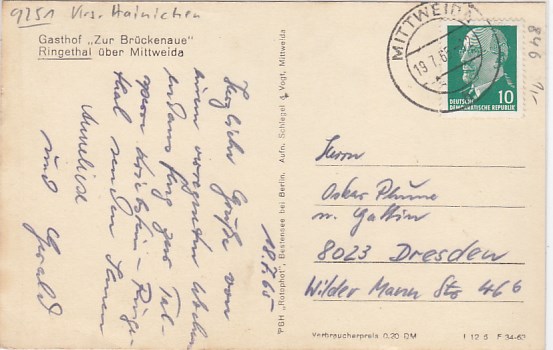 9251 Krs. Hainichen
Gasthof „Zur Brückenaue"
Ringethal über Mittweida
18.7.65
Herzliche Grüße von
einem verregneten
zur Tal-
sperre Kriebstein - Ringe-
thal senden Ihnen
Anneliese
und Gerald
PGH „Rotophot", Bestensee bei Berlin. Aufn. Schlegel & Vogt, Mittweida
MITTWEIDA
19.7.65
DEUTSCHE
DEMOKRATISCHE REPUBLIK
10
846
Herrn
Oskar Plume
u. Gattin
8023 Dresden
Wilder Mann Str 46 b
Verbraucherpreis 0,20 DM
F 34-63